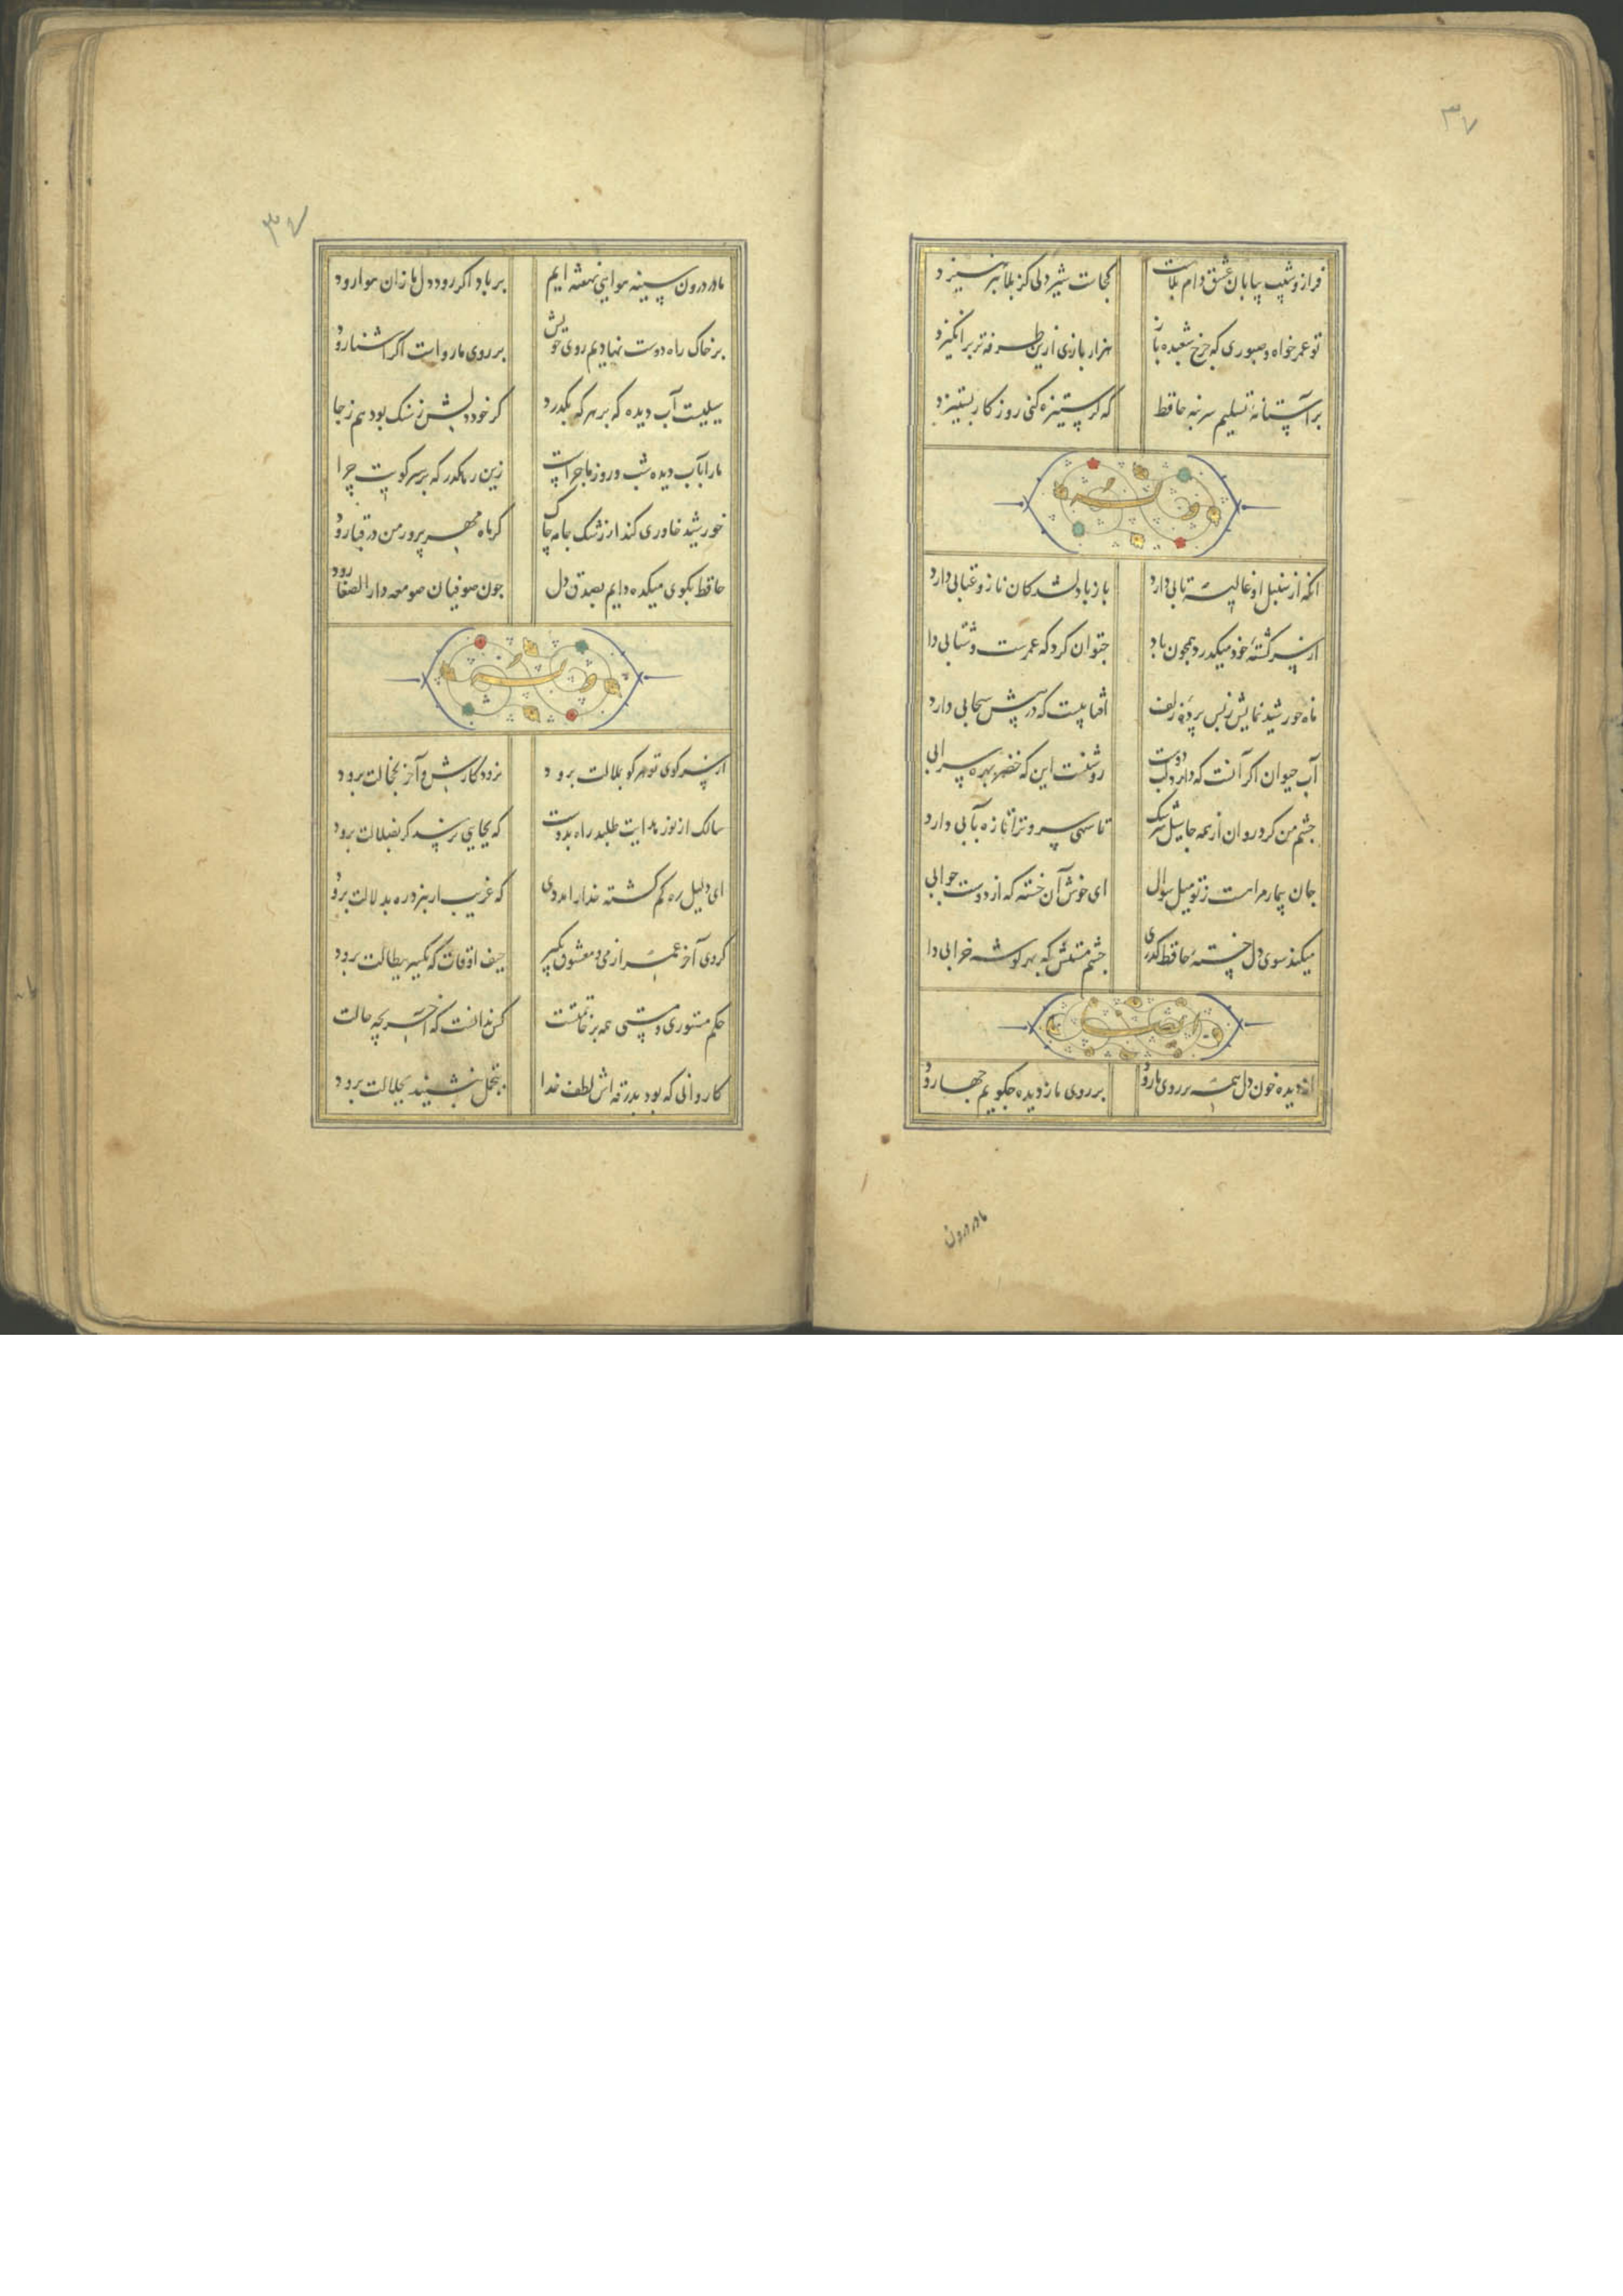 ۳۷
فراز و شیب بیابان عشق دام بلاست کجاست شیردلی کز بلا نپرهیزد
تو عمر خواه و صبوری که چرخ شعبده باز هزار بازی ازین طرفه‌تر برانگیزد
بر آستانهٔ تسلیم سر بنه حافظ که گر ستیزه کنی روزگار بستیزد
وله
انکه از سنبل او غالیه تابی دارد باز با دلشدکان ناز و عتابی دارد
از سر کشتهٔ خود میکذرد همچون باد چتوان کرد که عمرست و شتابی دا
ماه خورشید نمایش ز پس پردهٔ زلف افتابیست که در پیش سحابی دارد
آب حیوان اکر آنست که دارد لب دوست روشنست این که خضر بهره سرابی
چشم من کرد روان از همه جا سیل سرشک تا سهی سرو ترا تازه بآبی دارد
جان بیمار مرا نیست ز تو میل سوال ای خوش آن خسته که از دوست جوابی
میکند سوی دل خستهٔ حافظ کذری چشم مستش که بهر کوشه خرابی دا
از دیده خون دل همه بر روی ما رود بر روی ما ز دیده چکویم چها رود
ما در درون
۳۷
ما در درون سینه هوایی نهفته ایم بر باد اکر رود دل ما زان هوا رود
بر خاک راه دوست نهادیم روی خویش بر روی ما رواست اکر اشنا رود
سیلیست آب دیده که بر هر که بکذرد کر خود دلش ز سنک بود هم ز جا
ما را بآب دیده شب و روز ماجراست زین رهکذر که بر سر کویت چرا
خورشید خاوری کند از رشک جامه چاک کر ماه مهر پرور من در قبا رود
حافظ بکوی میکده دایم بصدق دل چون صوفیان صومعه دار الصفا رود
وله
از سر کوی تو هر کو بملالت برود نرود کارش و آخر بخجالت برود
سالک از نور هدایت طلبد راه بدوست که بجایی نرسد کر بضلالت برود
ای دلیل ره کم کشته خدا را مددی که غریب ار نبرد ره بدلالت برود
کردی آخر عمر از می و معشوق بکیر حیف اوقات که یکسر ببطالت برود
حکم مستوری و مستی همه بر خاتمتست کس ندانست که آخر بچه حالت
کاروانی که بود بدرقه اش لطف خدا بتجمل بنشیند بجلالت برود